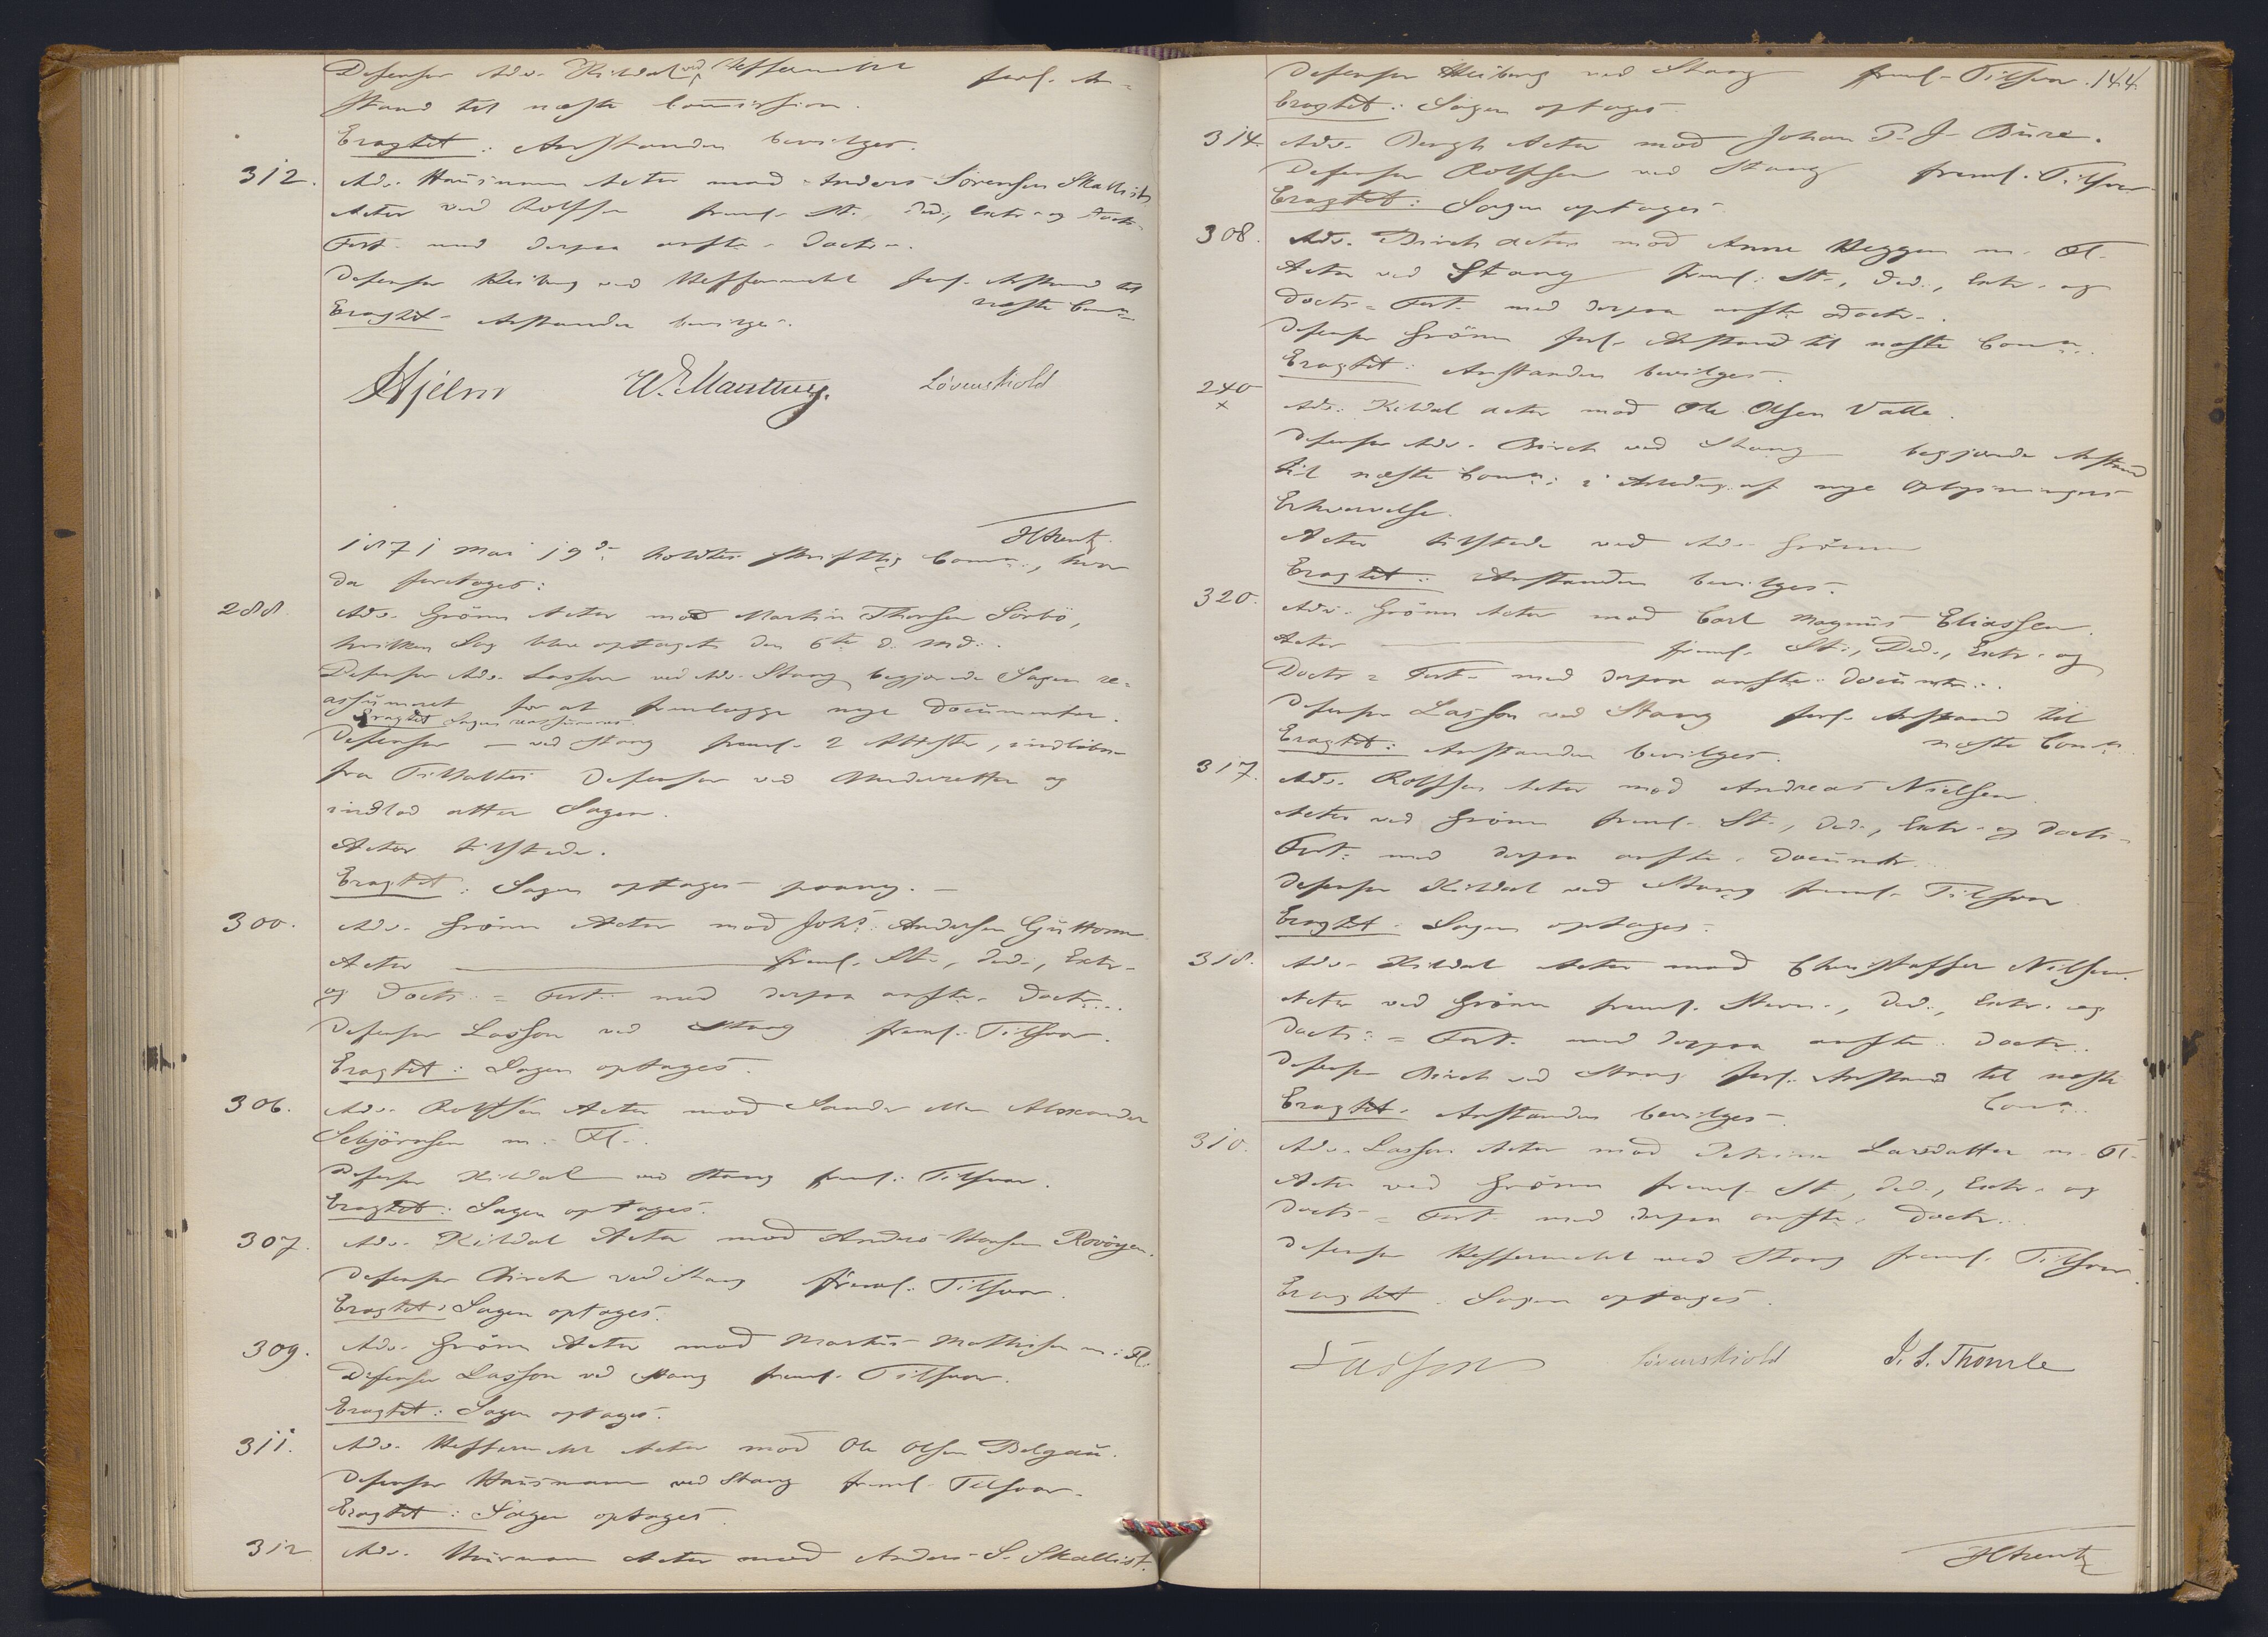 Defensor Adv. Kildal ved Heffermehl forl. An-
stand til næste Commission.
Eragtet: Anstanden bevilges.
312. Adv. Hausmann Actor mod Anders Sörensen Skallist
Actor ved Rolfsen freml. St., Ded., Extr. og Doctr.
Fort. med derpaa anførte Doctr.
Defensor Heiberg ved Heffermehl forl. Anstand til
næste Comm.
Eragtet Anstanden bevilges.
Hjelm W. E. Mantzey. Lövenskiold
HArentz
1871 Mai 19de holdtes skriftlig Comm., hvor
da foretoges:
288. Adv. Grönn Actor mod Martin Thorsen Sörbö,
hvilken Sag blev optaget den 6te d. Md.
Defensor Adv. Lasson ved Adv. Stang begjærede Sagen re-
assumeret for at fremlægge nye Documenter.
Eragtet Sagen reassumeres.
Defensor — ved Stang freml. 2 Attester, indløbne
fra Tiltaltes Defensor ved Underretten og
indlod atter Sagen.
Actor tilstede.
Eragtet: Sagen optages paany. —
300. Adv. Grönn Actor mod Johs. Andersen Guttorm
Actor — freml. St., Ded., Extr.
og Doctr. = Fort. med derpaa anførte Doctr.
Defensor Lasson ved Stang freml. Tilsvar.
Eragtet: Sagen optages.
306. Adv. Rolfsen Actor mod Sander Alexander
Sebjörnsen m. Fl.
Defensor Kildal ved Stang freml. Tilsvar.
Eragtet: Sagen optages.
307. Adv. Kildal Actor mod Anders Hansen Rovöyen.
Defensor Birch ved Stang freml. Tilsvar.
Eragtet: Sagen optages.
309. Adv. Grönn Actor mod Martin Mathisen m. Fl.
Defensor Lasson ved Stang freml. Tilsvar.
Eragtet: Sagen optages.
311. Adv. Heffermehl Actor mod Ole Olsen Belgau.
Defensor Hausmann ved Stang freml. Tilsvar.
Eragtet: Sagen optages.
312 Adv. Hausmann Actor mod Anders S. Skallist.
Defensor Heiberg ved Stang freml. Tilsvar. 144.
Eragtet: Sagen optages.
314. Adv. Bergh Actor mod Johan P. J. Bure.
Defensor Rolfsen ved Stang freml. Tilsvar
Eragtet: Sagen optages.
308. Adv. Birch Actor mod Anne Heggen m. Fl.
Actor ved Stang freml. St., Ded., Extr. og
Doctr. = Fort. med derpaa anførte Doctr.
Defensor Grönn forl. Anstand til næste Comm.
Eragtet: Anstanden bevilges.
240 Adv. Kildal Actor mod Ole Olsen Valle.
x
Defensor Adv. Birch ved Stang begjærede Anstand
til næste Comm. i Anledning af nye Oplysningers
Erhvervelse.
Actor tilstede ved Adv. Grönn
Eragtet: Anstanden bevilges.
320. Adv. Grönn Actor mod Carl Magnus Eliassen.
Actor — freml. St., Ded., Extr. og
Doctr. = Fort. med derpaa anførte Documtr.
Defensor Lasson ved Stang forl. Anstand til
næste Comm.
Eragtet: Anstanden bevilges.
317. Adv. Rolfsen Actor mod Andreas Nielsen.
Actor ved Grönn freml. St., Ded., Extr. og Doctr. =
Fort. med derpaa anførte Documtr.
Defensor Kildal ved Stang freml. Tilsvar
Eragtet. Sagen optages.
318. Adv. Kildal Actor mod Christoffer Nilsen.
Actor ved Grönn freml. Stevn., Ded., Extr. og
Doctr. = Fort. med derpaa anførte Doctr.
Defensor Birch ved Stang forl. Anstand til næste
Comm.
Eragtet. Anstanden bevilges.
310. Adv. Lasson Actor mod Larsdatter m. Fl.
Actor ved Grönn freml. St., Ded., Extr. og
Doctr. = Fort. med derpaa anførte Doctr.
Defensor Heffermehl ved Stang freml. Tilsvar.
Eragtet. Sagen optages.
Lasson Lövenskiold J. S. Thomle
HArentz